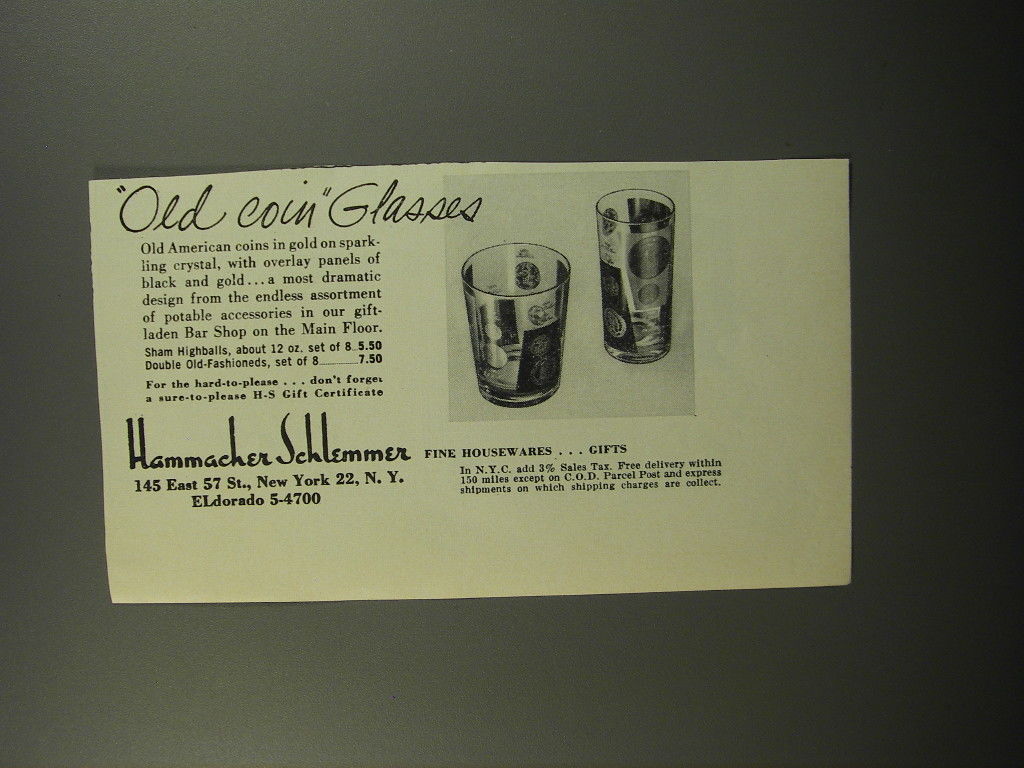 "Old coin" Glasses
Old American coins in gold on spark-
ling crystal, with overlay panels of
black and gold...a most dramatic
design from the endless assortment
of potable accessories in our gift-
laden Bar Shop on the Main Floor.
Sham Highballs, about 12 oz. set of 8..5.50
Double Old-Fashioneds, set of 8............7.50
For the hard-to-please . . . don't forget
a sure-to-please H-S Gift Certificate
Hammacher Schlemmer
FINE HOUSEWARES . . . GIFTS
145 East 57 St., New York 22, N. Y.
ELdorado 5-4700
In N.Y.C. add 3% Sales Tax. Free delivery within
150 miles except on C.O.D. Parcel Post and express
shipments on which shipping charges are collect.